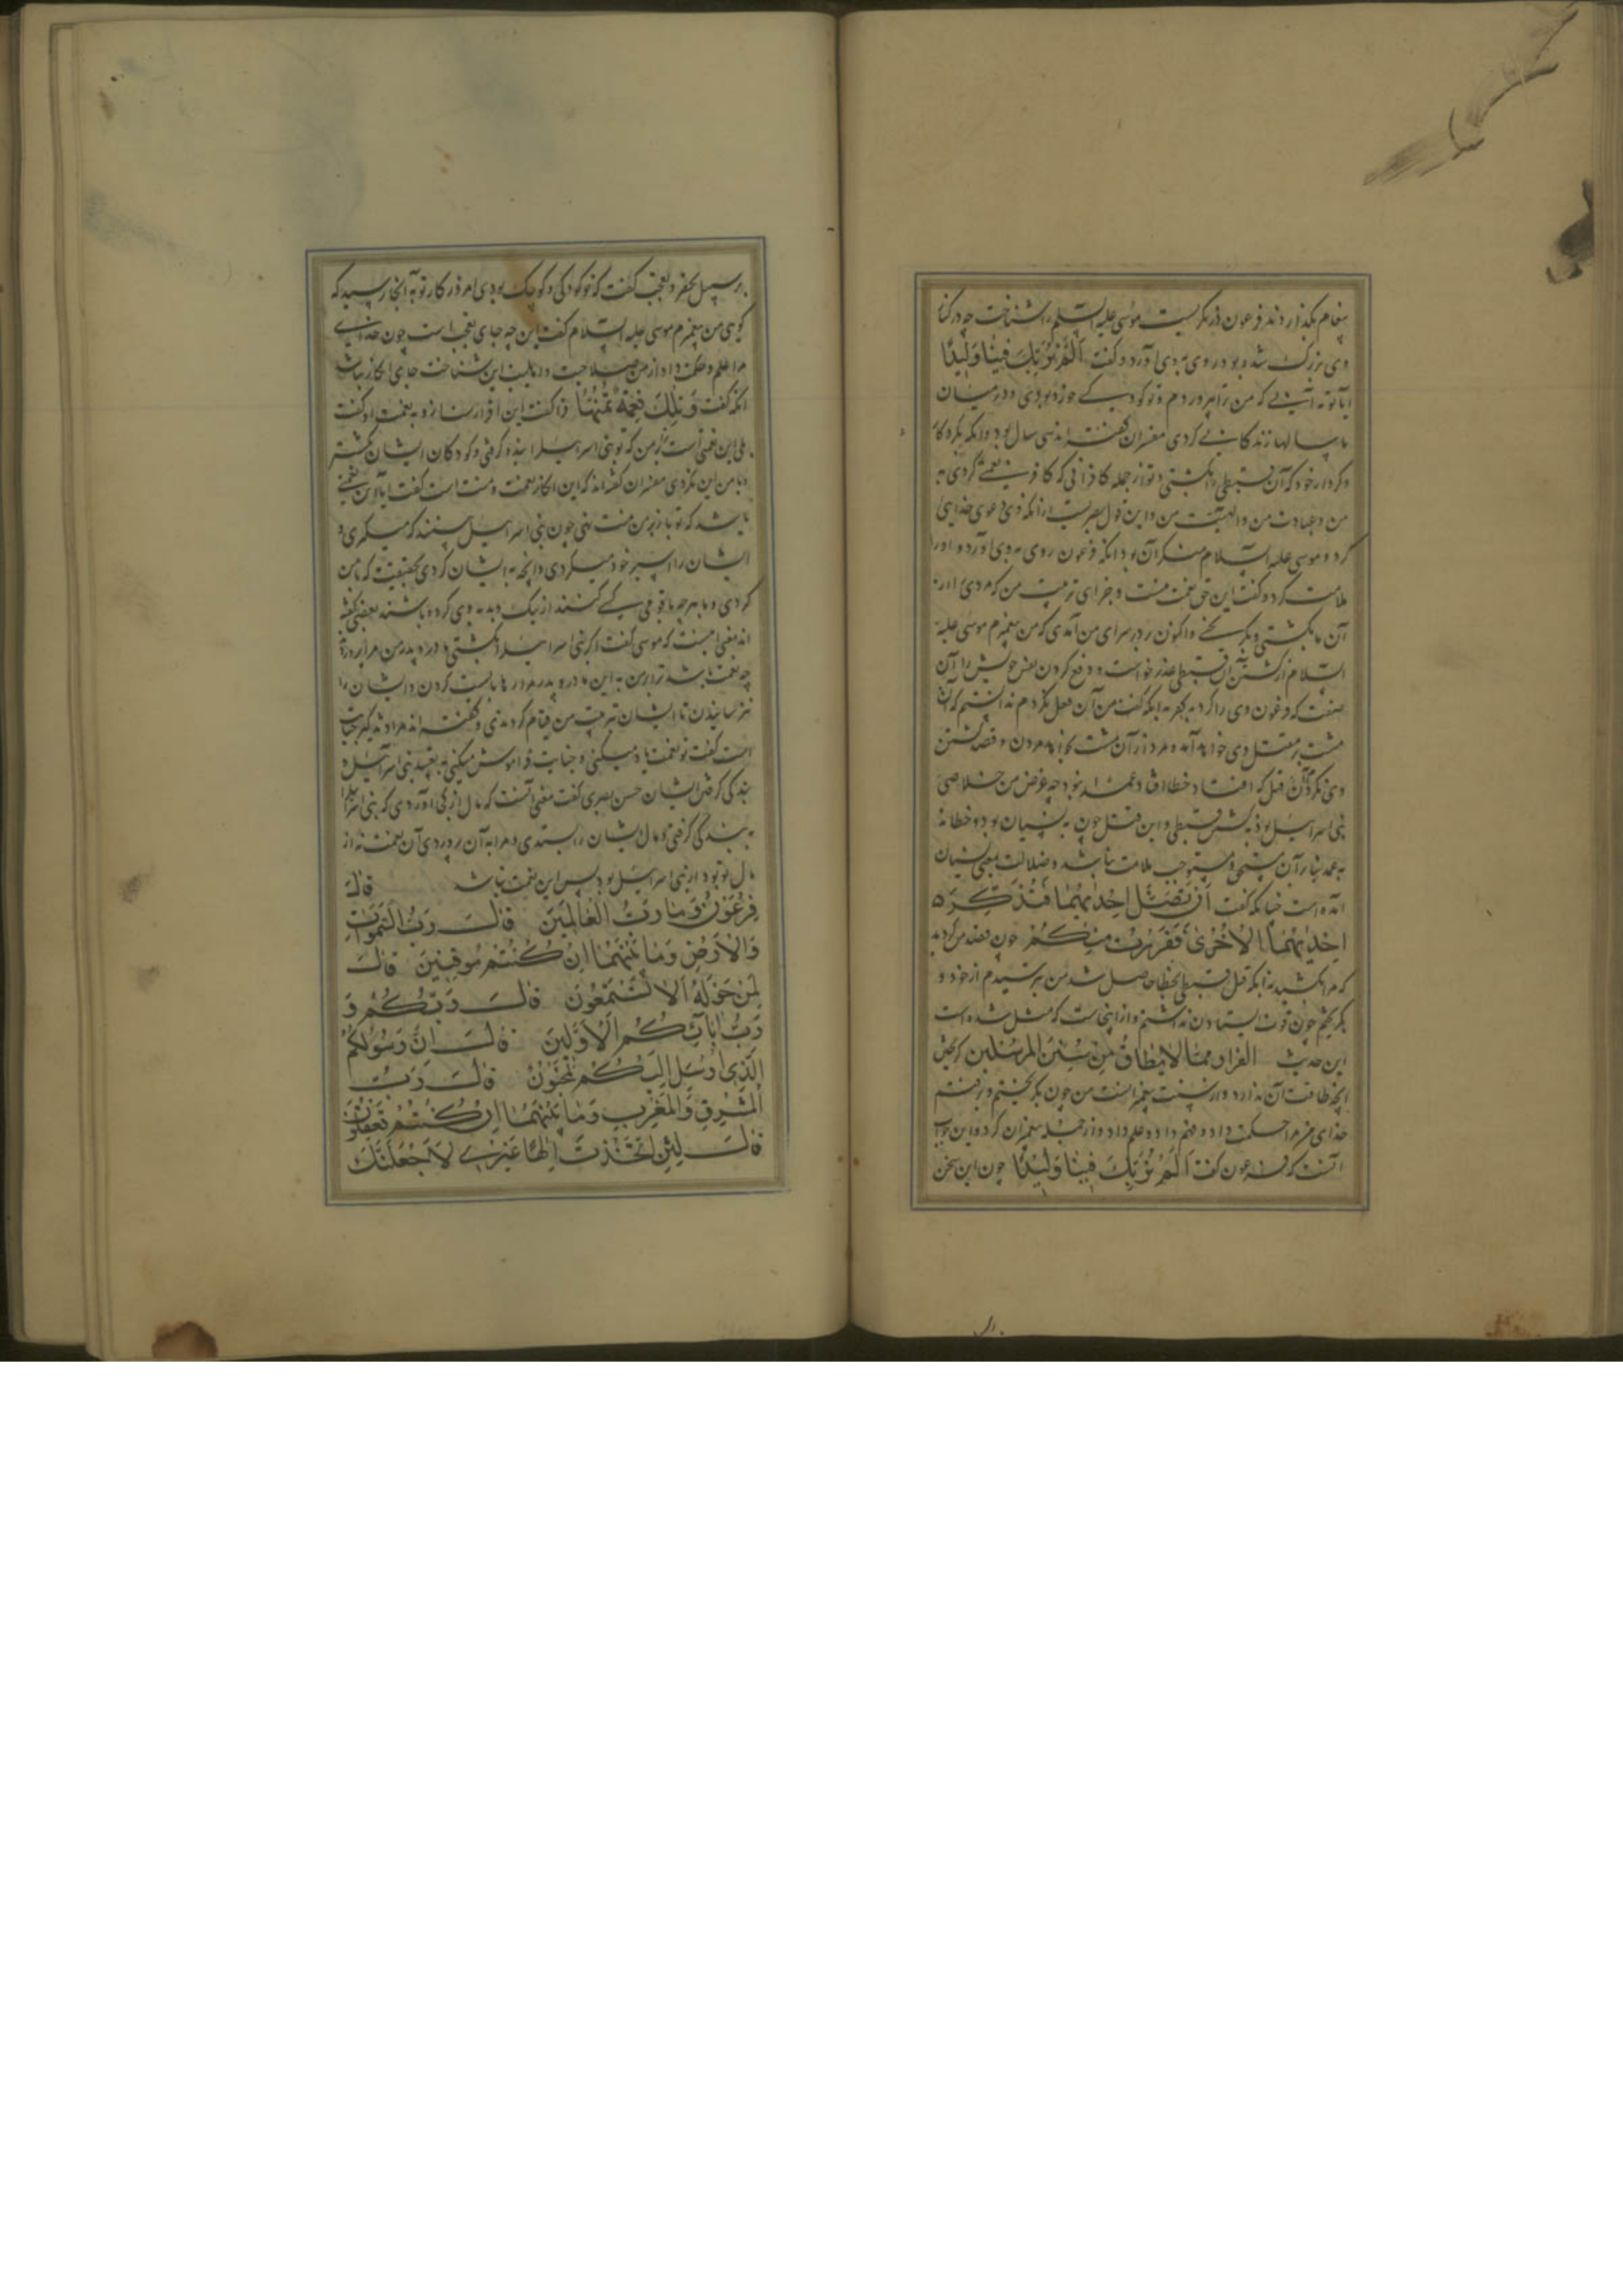 پیغام بگذاردند فرعون در نگریست موسی علیه السلم را شناخت چه در کنار
وی بزرگ شده بود روی بوی آورد و گفت اَلَمْ نُرَبِّكَ فِينَا وَلِيدًا
آیا تو نه آنی که من ترا پروردم و تو کودکی خورد بودی و در میان
ما سالها زندگانی کردی مفسران گفته‌اند سی سال بود و آنکه بکرد کار
و کردار خود که آن قبطی را بکشتی و تو از جمله کافرانی که کافر نعمتی کردی به
من و عبادت من و الهیت من و این قول بصریست از آنکه وی دعوی خدایی
کرد و موسی علیه السلام منکر آن بود آنکه فرعون روی بوی آورد و او را
ملامت کرد و گفت این حق نعمت منست و جزای تربیت من که مردی را از
آن ما بکشتی و بگریختی و اکنون در سرای من آمدی که من پیغمبرم موسی علیه
السلام از کشتن آن قبطی عذر خواست و دفع کردن نفس خویش را از آن
صفت که فرعون وی را کرد به کفر به آنکه گفت من آن فعل نکردم ندانستم که آن
مشت بر مقتل وی خواهد آمد و مرد از آن مشت بخواهد مردن و قصد کشتن
وی نکردم آن قتل که افتاد خطا افتاد عمدا نبود چه غرض من خلاصی
بنی اسرائیل بود نه کشتن قبطی و این قتل چون به نسیان بود و خطا نه
به عمد بنابر آن مستحق و مستوجب ملامت نباشد و ضلالت بمعنی نسیان
آمده است چنانکه گفت اَنْ تَضِلَّ اِحْدٰیهُمَا فَتُذَكِّرَ
اِحْدٰیهُمَا الْاُخْرٰی فَفَرَرْتُ مِنْكُمْ چون قصد من کردید
که مرا بکشید به آنکه قتل قبطی بخطا حاصل شد من بترسیدم از خود و
بگریختم چون قوت ایستادن نداشتم و از اینجاست که مثل شده است
این حدیث الفرار مما لا یطاق من سنن المرسلین گریختن
آنچه طاقت آن ندارد از سنت پیغمبرانست من چون بگریختم و برفتم
خدای مرا حکمت داد و فهم داد و علم داد و از جمله پیغمبران کرد و این جواب
آنست که فرعون گفت اَلَمْ نُرَبِّكَ فِينَا وَلِيدًا چون این سخن
بر سبیل تحقیر و تعجب گفت که تو کودکی و کوچک بودی امروز کار تو به آنجا رسید که
گویی من پیغمبرم موسی علیه السلام گفت این چه جای تعجب است چون خدای
مرا علم و حکمت داد از من صلاحیت و اهلیت این شناخت جای انکار نباشد
آنکه گفت وَتِلْكَ نِعْمَةٌ تَمُنُّهَا فرا گفت این اقرارست از وی به نعمت او گفت
بلی این نعمتی است ترا بر من که تو بنی اسرائیل را بنده گرفتی و کودکان ایشان بکشتی
و با من این نکردی مفسران گفته‌اند که این انکار نعمت و منت است گفت آیا این نعمتی
باشد که تو بازبر من منت نهی چون بنی اسرائیل
ایشان را اسیر خود میکردی و آنچه به ایشان کردی بحقیقت که با من
کردی و با هر چه با قومی یکی کنند از نیک و بد به وی کرده باشند بعضی گفته
اند معنی اینست که موسی گفت اگر بنی اسرائیل را نکشتی مادر و پدر من مرا پروردندی
چه نعمت باشد ترا بر من به این مادر و پدر مرا
نترسانیدن تا ایشان بتربیت من قیام کردندی و گفته‌اند مراد
است گفت تو نعمت یاد میکنی و جنایت فراموش میکنی به تعبید بنی اسرائیل و
بندگی گرفتن ایشان حسن بصری گفت معنی آنست که مال از کجا آوردی که بنی اسرائیل را
به بندگی گرفتی و مال ایشان را بستدی و مرا به آن پروردی آن نعمت نه از
مال تو بود از بنی اسرائیل بود پس این نعمت نباشد قَالَ
فِرْعَوْنُ وَمَا رَبُّ الْعَالَمِينَ قَالَ رَبُّ السَّمٰوَاتِ
وَالْاَرْضِ وَمَا بَيْنَهُمَا اِنْ كُنْتُمْ مُوقِنِينَ قَالَ
لِمَنْ حَوْلَهُ اَلَا تَسْتَمِعُونَ قَالَ رَبُّكُمْ وَ
رَبُّ اٰبَائِكُمُ الْاَوَّلِينَ قَالَ اِنَّ رَسُولَكُمُ
الَّذِی اُرْسِلَ اِلَيْكُمْ لَمَجْنُونٌ قَالَ رَبُّ
الْمَشْرِقِ وَالْمَغْرِبِ وَمَا بَيْنَهُمَا اِنْ كُنْتُمْ تَعْقِلُونَ
قَالَ لَئِنِ اتَّخَذْتَ اِلٰهًا غَيْرِی لَاَجْعَلَنَّكَ